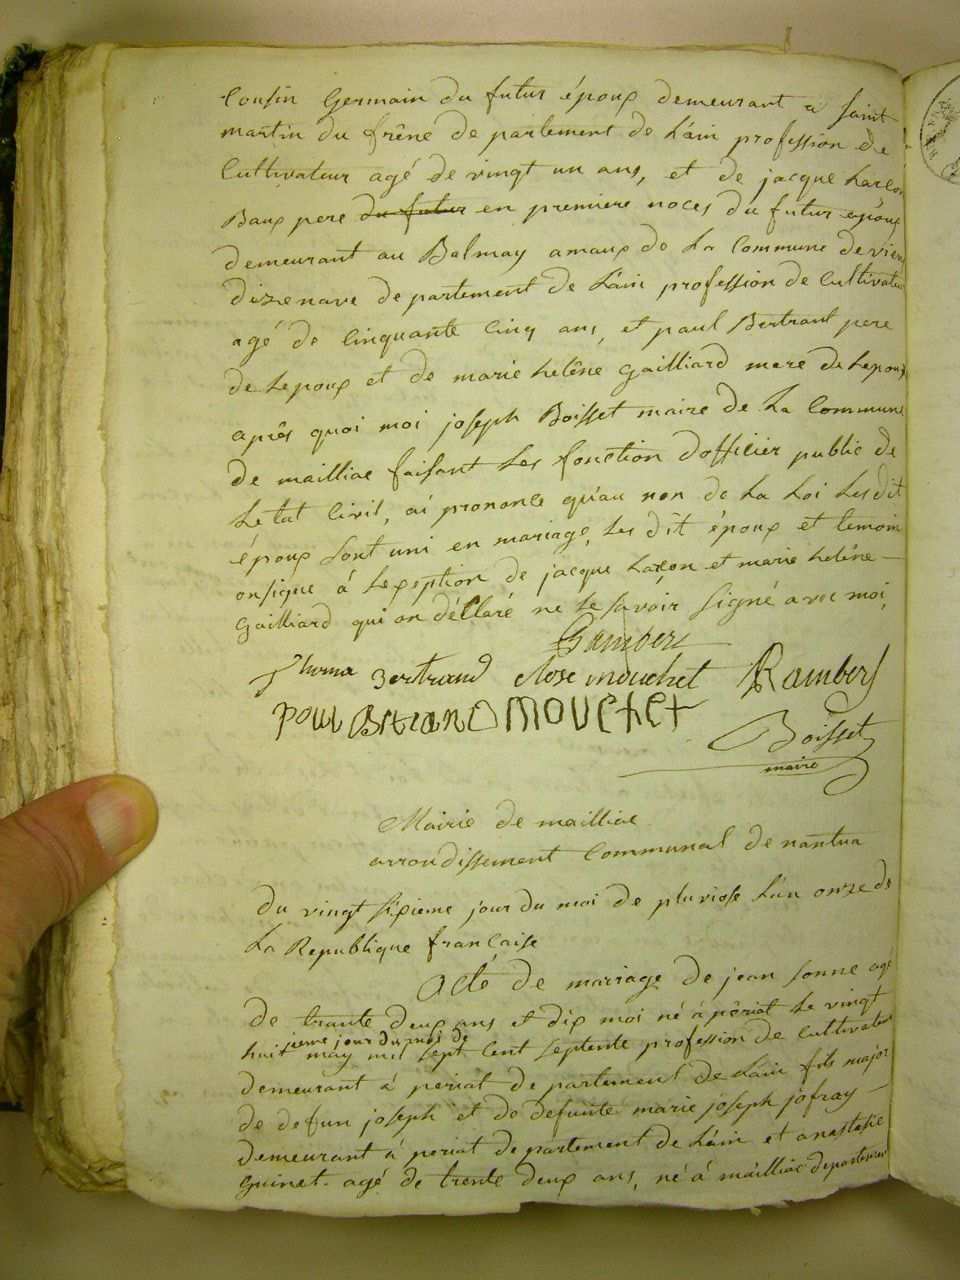 Cousin Germain du futur époux demeurant a saint
martin du frêne departement de Lain profession de
Cultivateur agé de vingt un ans, et de jacque Larçon
Baux pere du futur en premiere noces du futur époux
demeurant au Balmay amaux de La Commune de vieu
dizenave departement de Lain profession de Cultivateu
agé de Cinquante Cinq ans, et paul Bertrant pere
de Lepoux et de marie helêne gailliard mere de Lepoux
aprês quoi moi joseph Boisset maire de La Commune
de mailliac faisant Les fonction dofficier public de
Letat Civil, ai prononcé qu'au non de La Loi Les dit
époux sont uni en mariage, Les dit époux et temoin
onsigné á Lexseption de jacque Larçon et marie helêne
gailliard qui on déclaré ne Le savoir signé avec moi,
Gambert
Bertrand Rose mouchet Rambert
poul Bertrand MOUCHET
Boisset
maire
Mairie de mailliac
arrondissement Communal de nantua
du vingt sixieme jour du moi de pluviose L'an onze de
La Republique francaise
Acté de mariage de jean sonne agé
de trante deux ans et dix moi né á périat Le vingt
jieme jour du moi de
huit may mil sept Cent septente profession de Cultivateur
demeurant á periat departement de Lain fils major
de defun joseph et de defunte marie joseph jofray
demeurant á periat departement de Lain et anastasie
guinet. agé de trente deux ans, né á mailliac departement